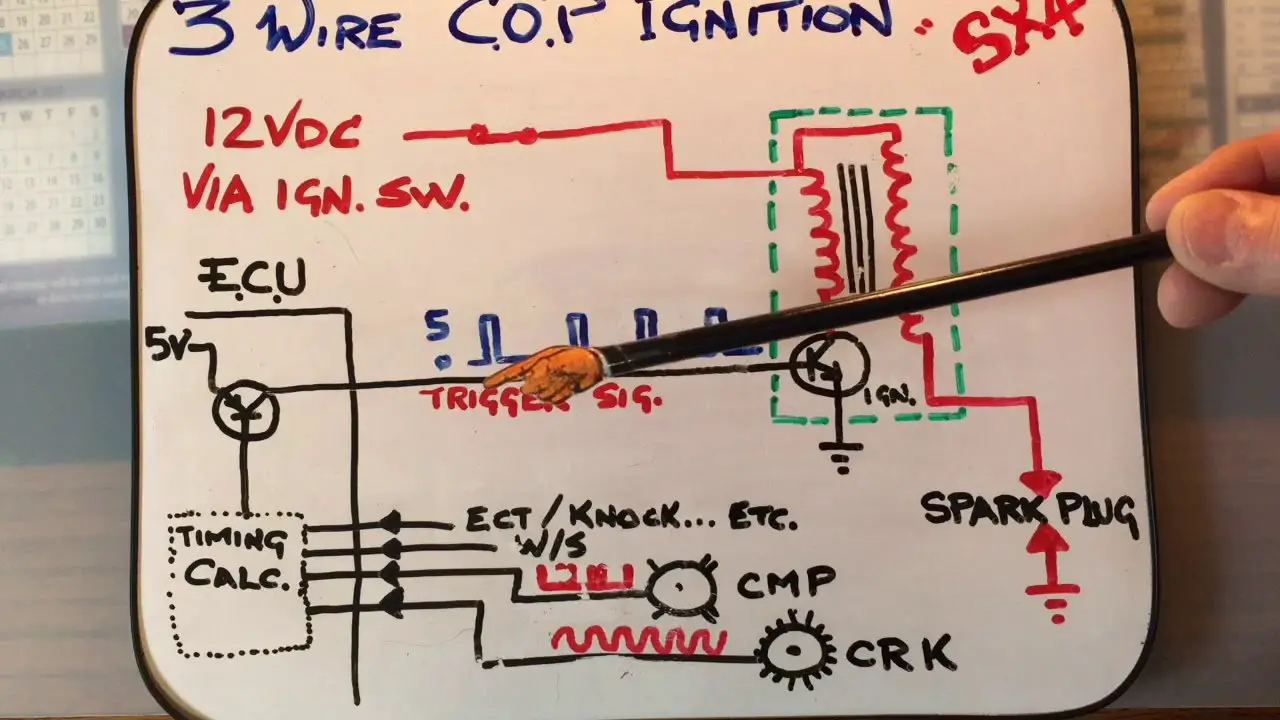 3 WIRE C.O.P IGNITION.
12VDC
VIA IGN. SW.
E.C.U
5V
5
0
TRIGGER SIG.
IGN.
SPARK PLUG
TIMING
CALC.
ECT/KNOCK... ETC.
W/S
CMP
CRK